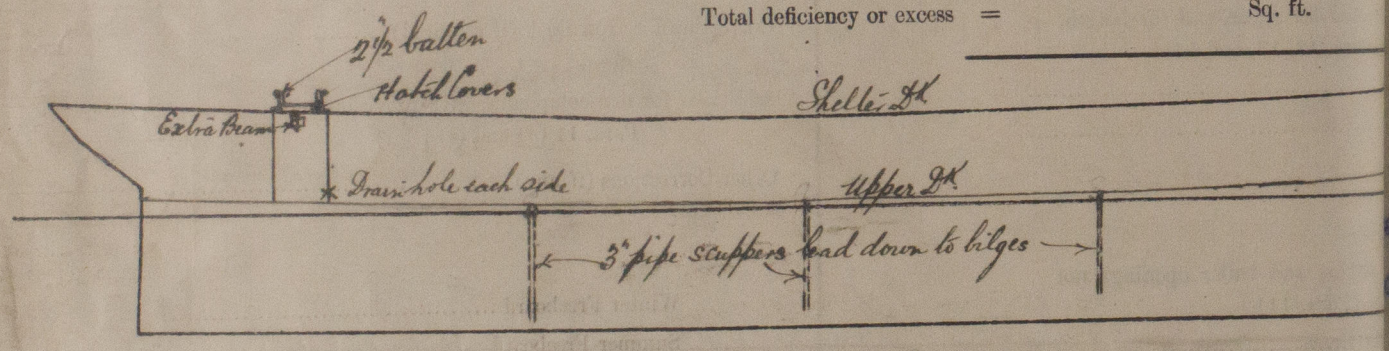 Total deficiency or excess = Sq. ft.
2½" batten
Hatch Covers
Shelter Dk
Extra Beam
Drain hole each side
Upper Dk
3" pipe scuppers lead down to bilges